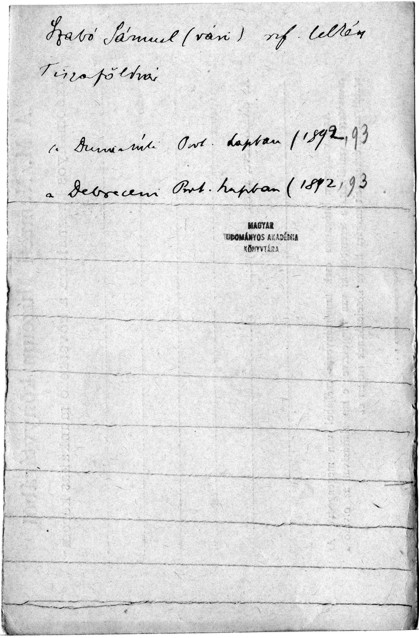 Szabó Sámuel (vári) ref. lelkész
Tiszaföldvár
a Dunántúli Prot. Lapban (1892, 93
a Debreceni Prot. Lapban (1892, 93
MAGYAR
TUDOMÁNYOS AKADÉMIA
KÖNYVTÁRA